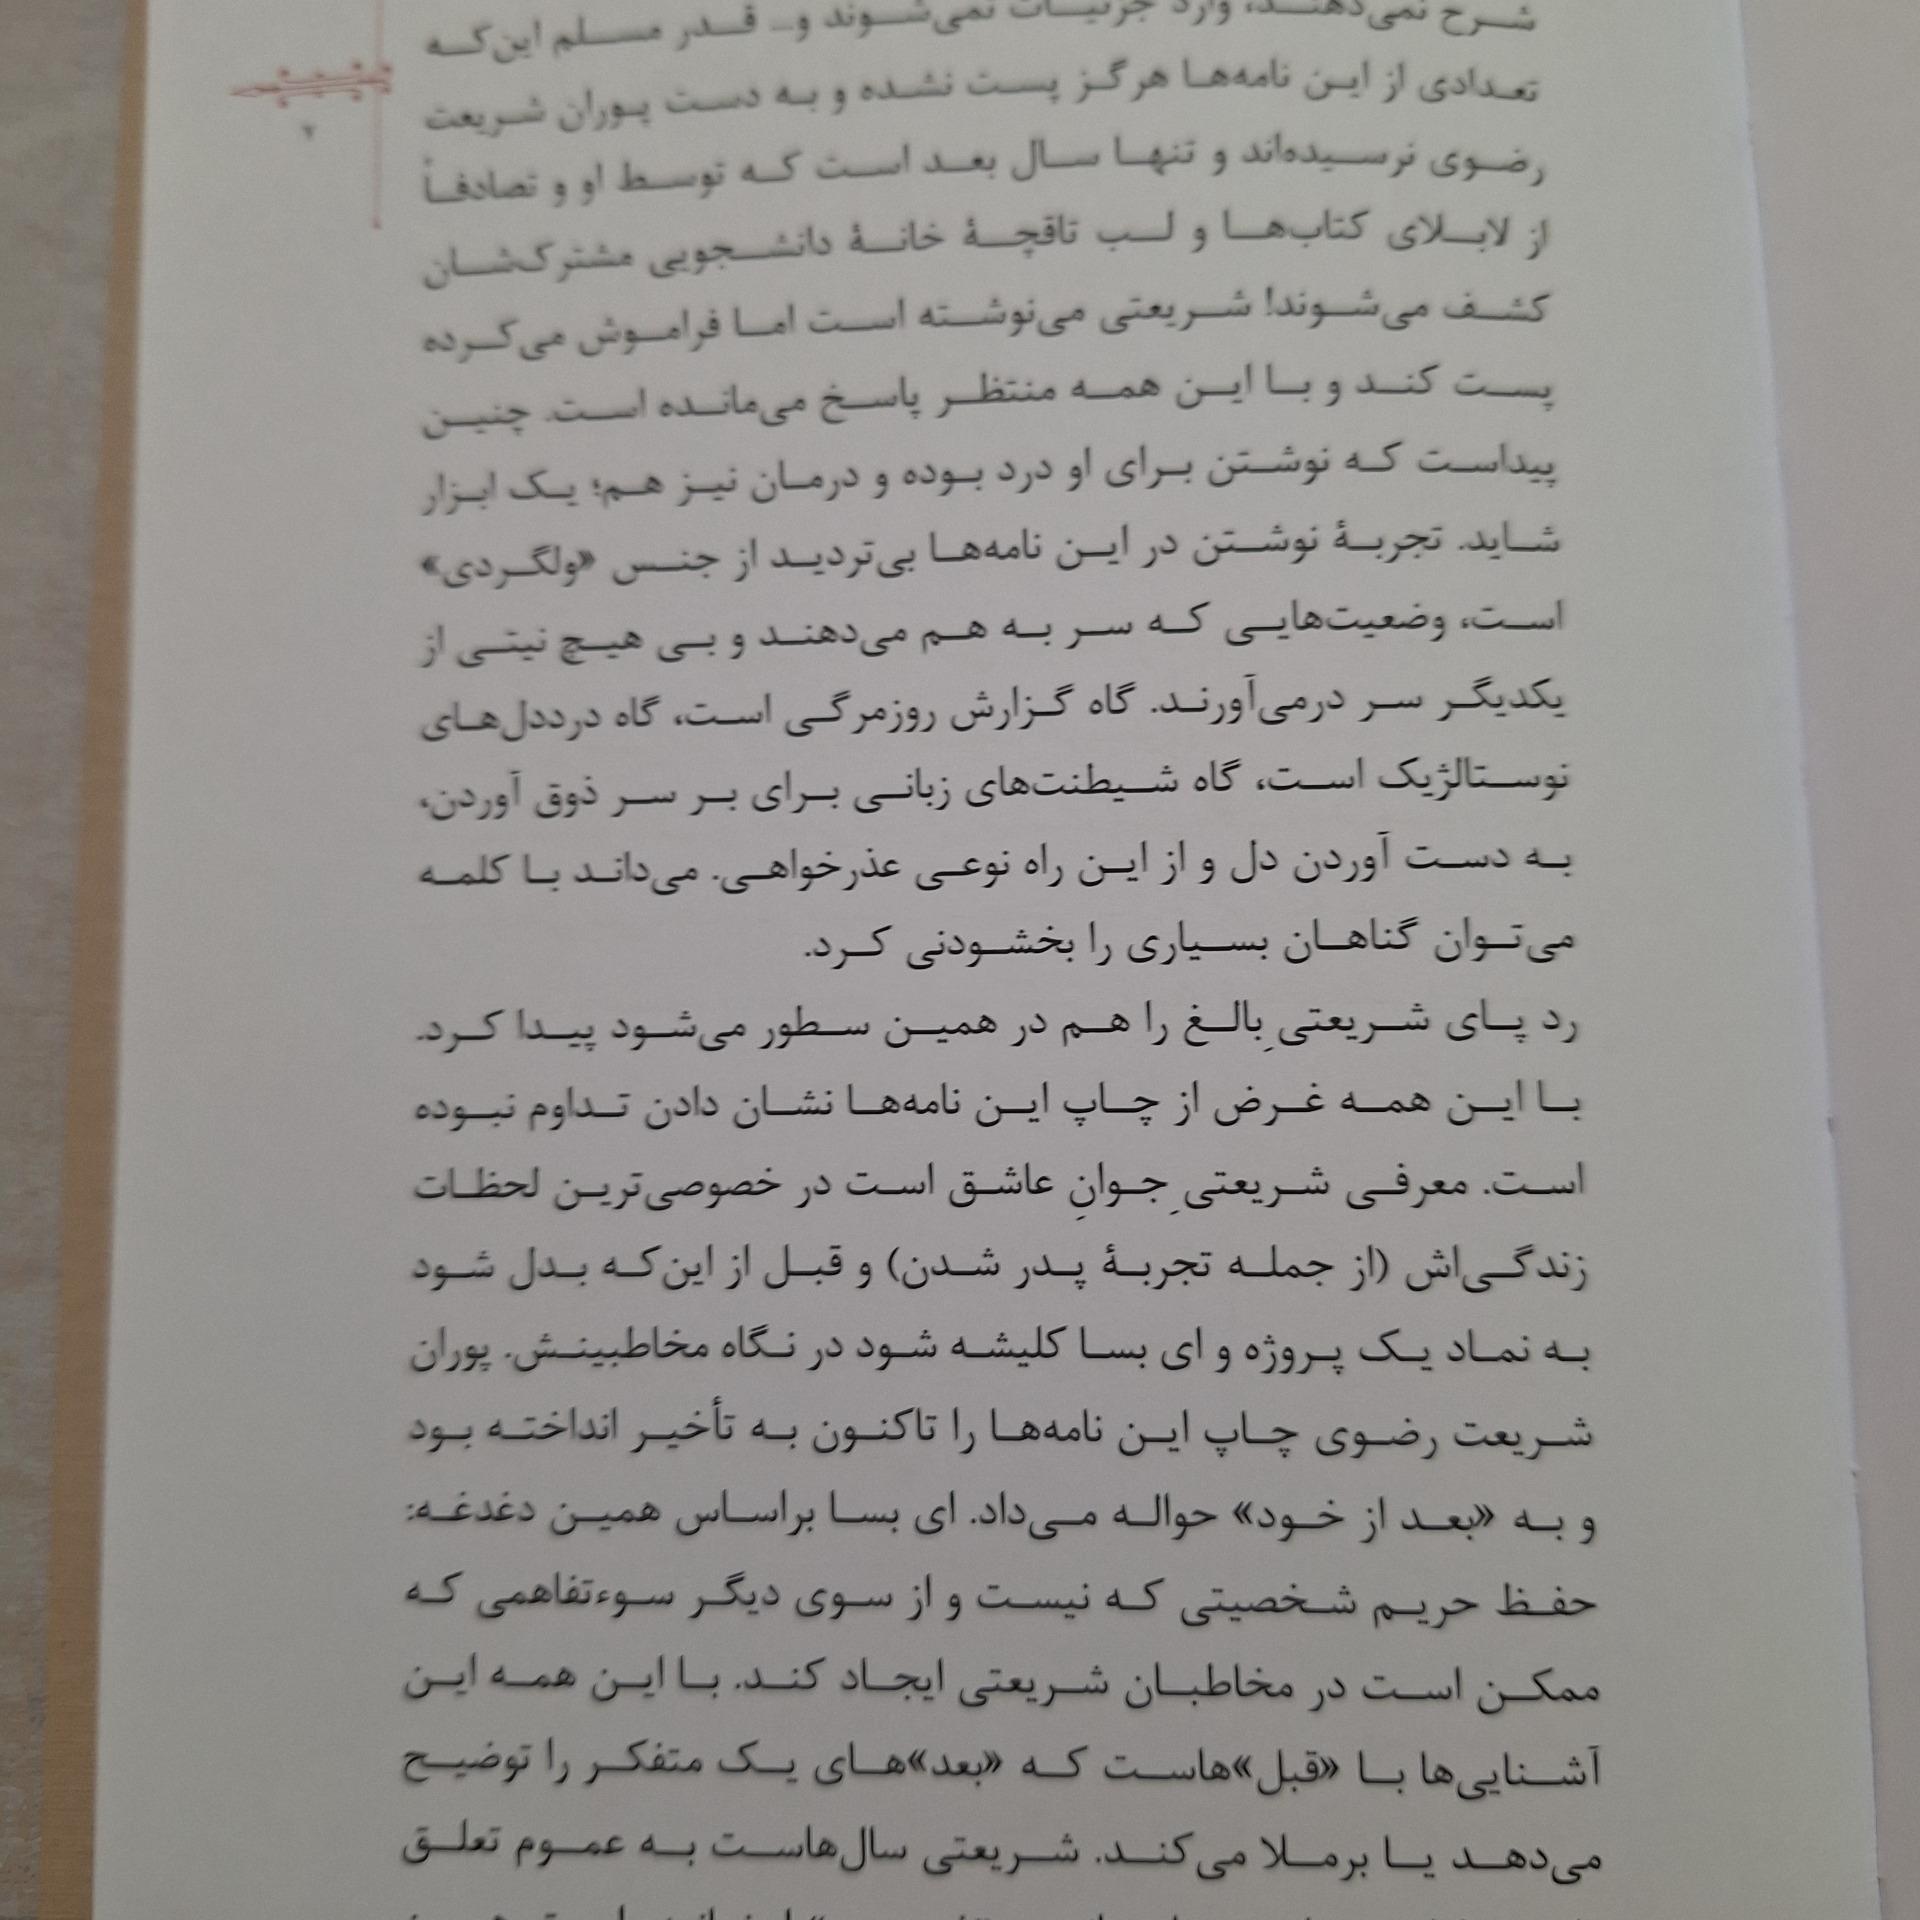 شرح نمی‌دهند، وارد جزئیات نمی‌شوند و... قدر مسلم این‌که
تعدادی از این نامه‌ها هرگز پست نشده و به دست پوران شریعت
رضوی نرسیده‌اند و تنها سال بعد است که توسط او و تصادفاً
از لابلای کتاب‌ها و لب تاقچهٔ خانهٔ دانشجویی مشترک‌شان
کشف می‌شوند! شریعتی می‌نوشته است اما فراموش می‌کرده
پست کند و با این همه منتظر پاسخ می‌مانده است. چنین
پیداست که نوشتن برای او درد بوده و درمان نیز هم؛ یک ابزار
شاید. تجربهٔ نوشتن در این نامه‌ها بی‌تردید از جنس «ولگردی»
است، وضعیت‌هایی که سر به هم می‌دهند و بی هیچ نیتی از
یکدیگر سر درمی‌آورند. گاه گزارش روزمرگی است، گاه درددل‌های
نوستالژیک است، گاه شیطنت‌های زبانی برای بر سر ذوق آوردن،
به دست آوردن دل و از این راه نوعی عذرخواهی. می‌داند با کلمه
می‌توان گناهان بسیاری را بخشودنی کرد.
رد پای شریعتیِ بالغ را هم در همین سطور می‌شود پیدا کرد.
با این همه غرض از چاپ این نامه‌ها نشان دادن تداوم نبوده
است. معرفی شریعتیِ جوانِ عاشق است در خصوصی‌ترین لحظات
زندگی‌اش (از جمله تجربهٔ پدر شدن) و قبل از این‌که بدل شود
به نماد یک پروژه و ای بسا کلیشه شود در نگاه مخاطبینش. پوران
شریعت رضوی چاپ این نامه‌ها را تاکنون به تأخیر انداخته بود
و به «بعد از خود» حواله می‌داد. ای بسا براساس همین دغدغه:
حفظ حریم شخصیتی که نیست و از سوی دیگر سوءتفاهمی که
ممکن است در مخاطبان شریعتی ایجاد کند. با این همه این
آشنایی‌ها با «قبل»هاست که «بعد»های یک متفکر را توضیح
می‌دهد یا برملا می‌کند. شریعتی سال‌هاست به عموم تعلق